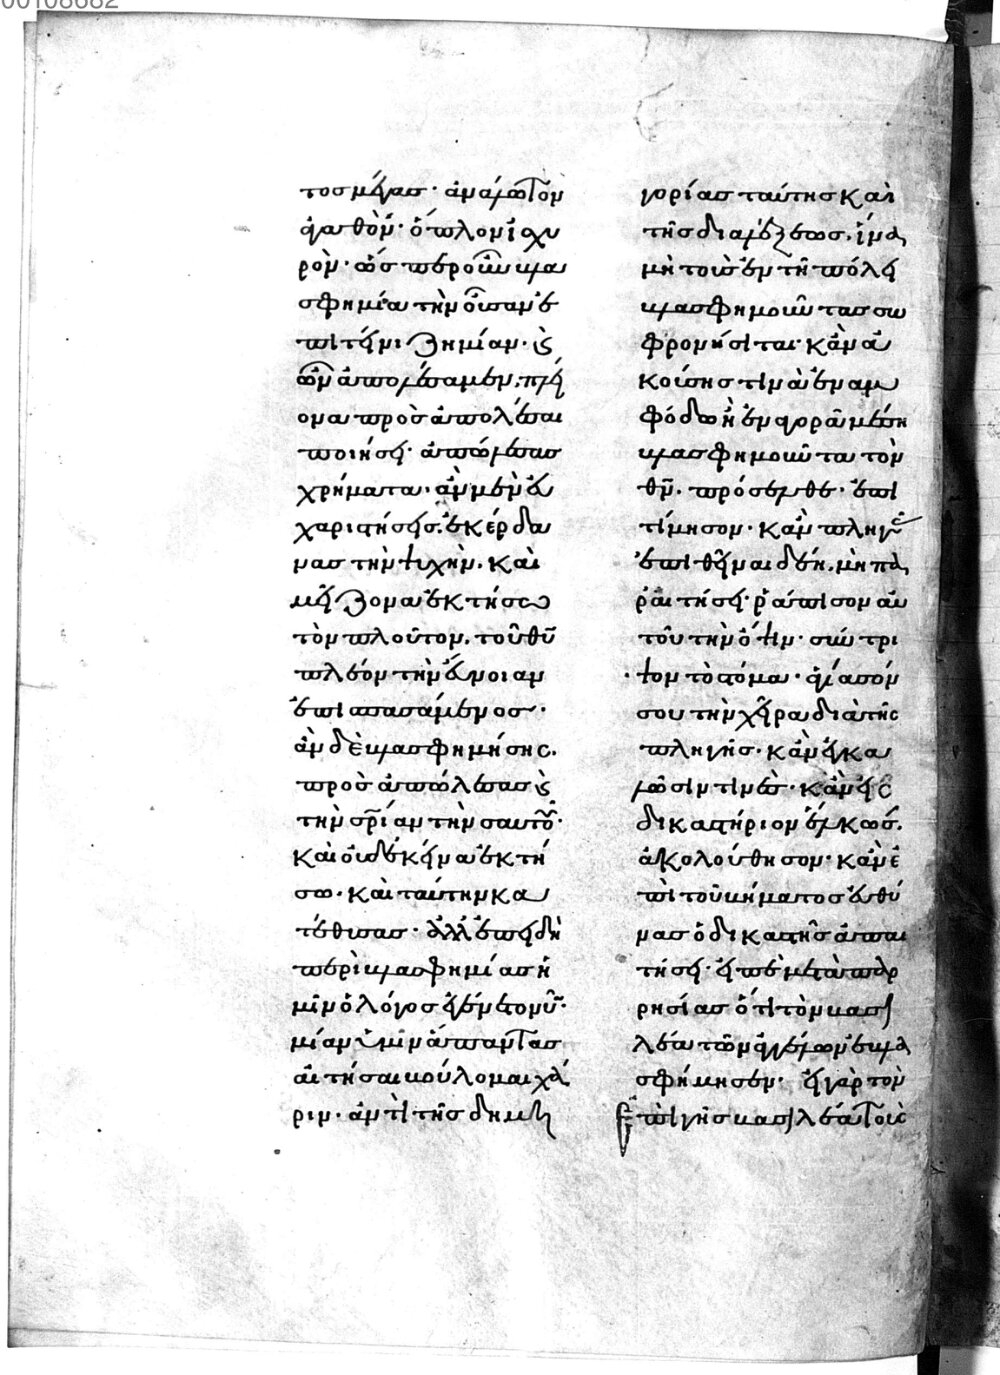 00108682
τος μέγας· ἀναφαίρετον
ἀγαθόν· ὅπλον ἰσχυ
ρόν· ὥσπερ οὖν βλα
σφημία τὴν οὖσαν ἐ
πιτείνει ζημίαν· εἰς
ὧν ἀπολέσαμεν· πλεί
ονα προσαπολέσαι
ποιήσει· ἀπώλεσας
χρήματα· ἂν μὲν εὐ
χαριστήσεις. ἐκέρδα
νας τὴν ψυχὴν. καὶ
μείζονα ἐκτήσω
τὸν πλοῦτον. τοῦ θυ
πλέον τὴν εὔνοιαν
ἐπισπασάμενος·
ἂν δὲ βλασφημήσης.
προσαπώλεσας
τὴν σρίαν τὴν σαυτοῦ·
καὶ οὐδὲ κείνα ἐκτή
σω· καὶ ταύτην κα
τέθυσας· ἀλλ' ἐπειδὴ
περὶ βλασφημίας ἡ
μῖν ὁ λόγος ἐγένετο νῦν·
μίαν ὑμῖν ἅπαντας
αἰτήσαι βούλομαι χά
ριν· ἀντὶ τῆς δημη
γορίας ταύτης καὶ
τῆς διαλέξεως. ἵνα
μὴ τοὺς ἐν τῆ πόλει
βλασφημοῦντας σω
φρονήσιται· κἂν ἀ
κούσης τινὰ ἐν ἀμ
φόδω ἢ ἐν ἀγορᾶ μέση
βλασφημοῦντα τὸν
θν. πρόσελθε· ἐπι
τίμησον· κἂν πληγὰς
ἐπιθεῖναι δέη. μὴ πα
ραιτήσει· ῥάπισον αὐ
τοῦ τὴν ὄψιν· σύντρι
ψον τὸ στόμα· ἁγίασόν
σου τὴν χεῖρα διὰ τῆς
πληγῆς· κἂν ἐγκα
λῶσίν τινες· κἂν εἰς
δικαστήριον ἕλκωσι.
ἀκολούθησον· κἂν ἐ
πὶ τοῦ βήματος εὐθύ
νας ὁ δικαστὴς ἀπαι
τήσει· εἰπὲ μετὰ παρ
ρησίας ὅτι τὸν βασι
λέα τῶν ἀγγέλων ἐβλα
σφήμησεν· εἰ γὰρ τὸν
ἐπὶ γῆς βασιλέα τοὺς